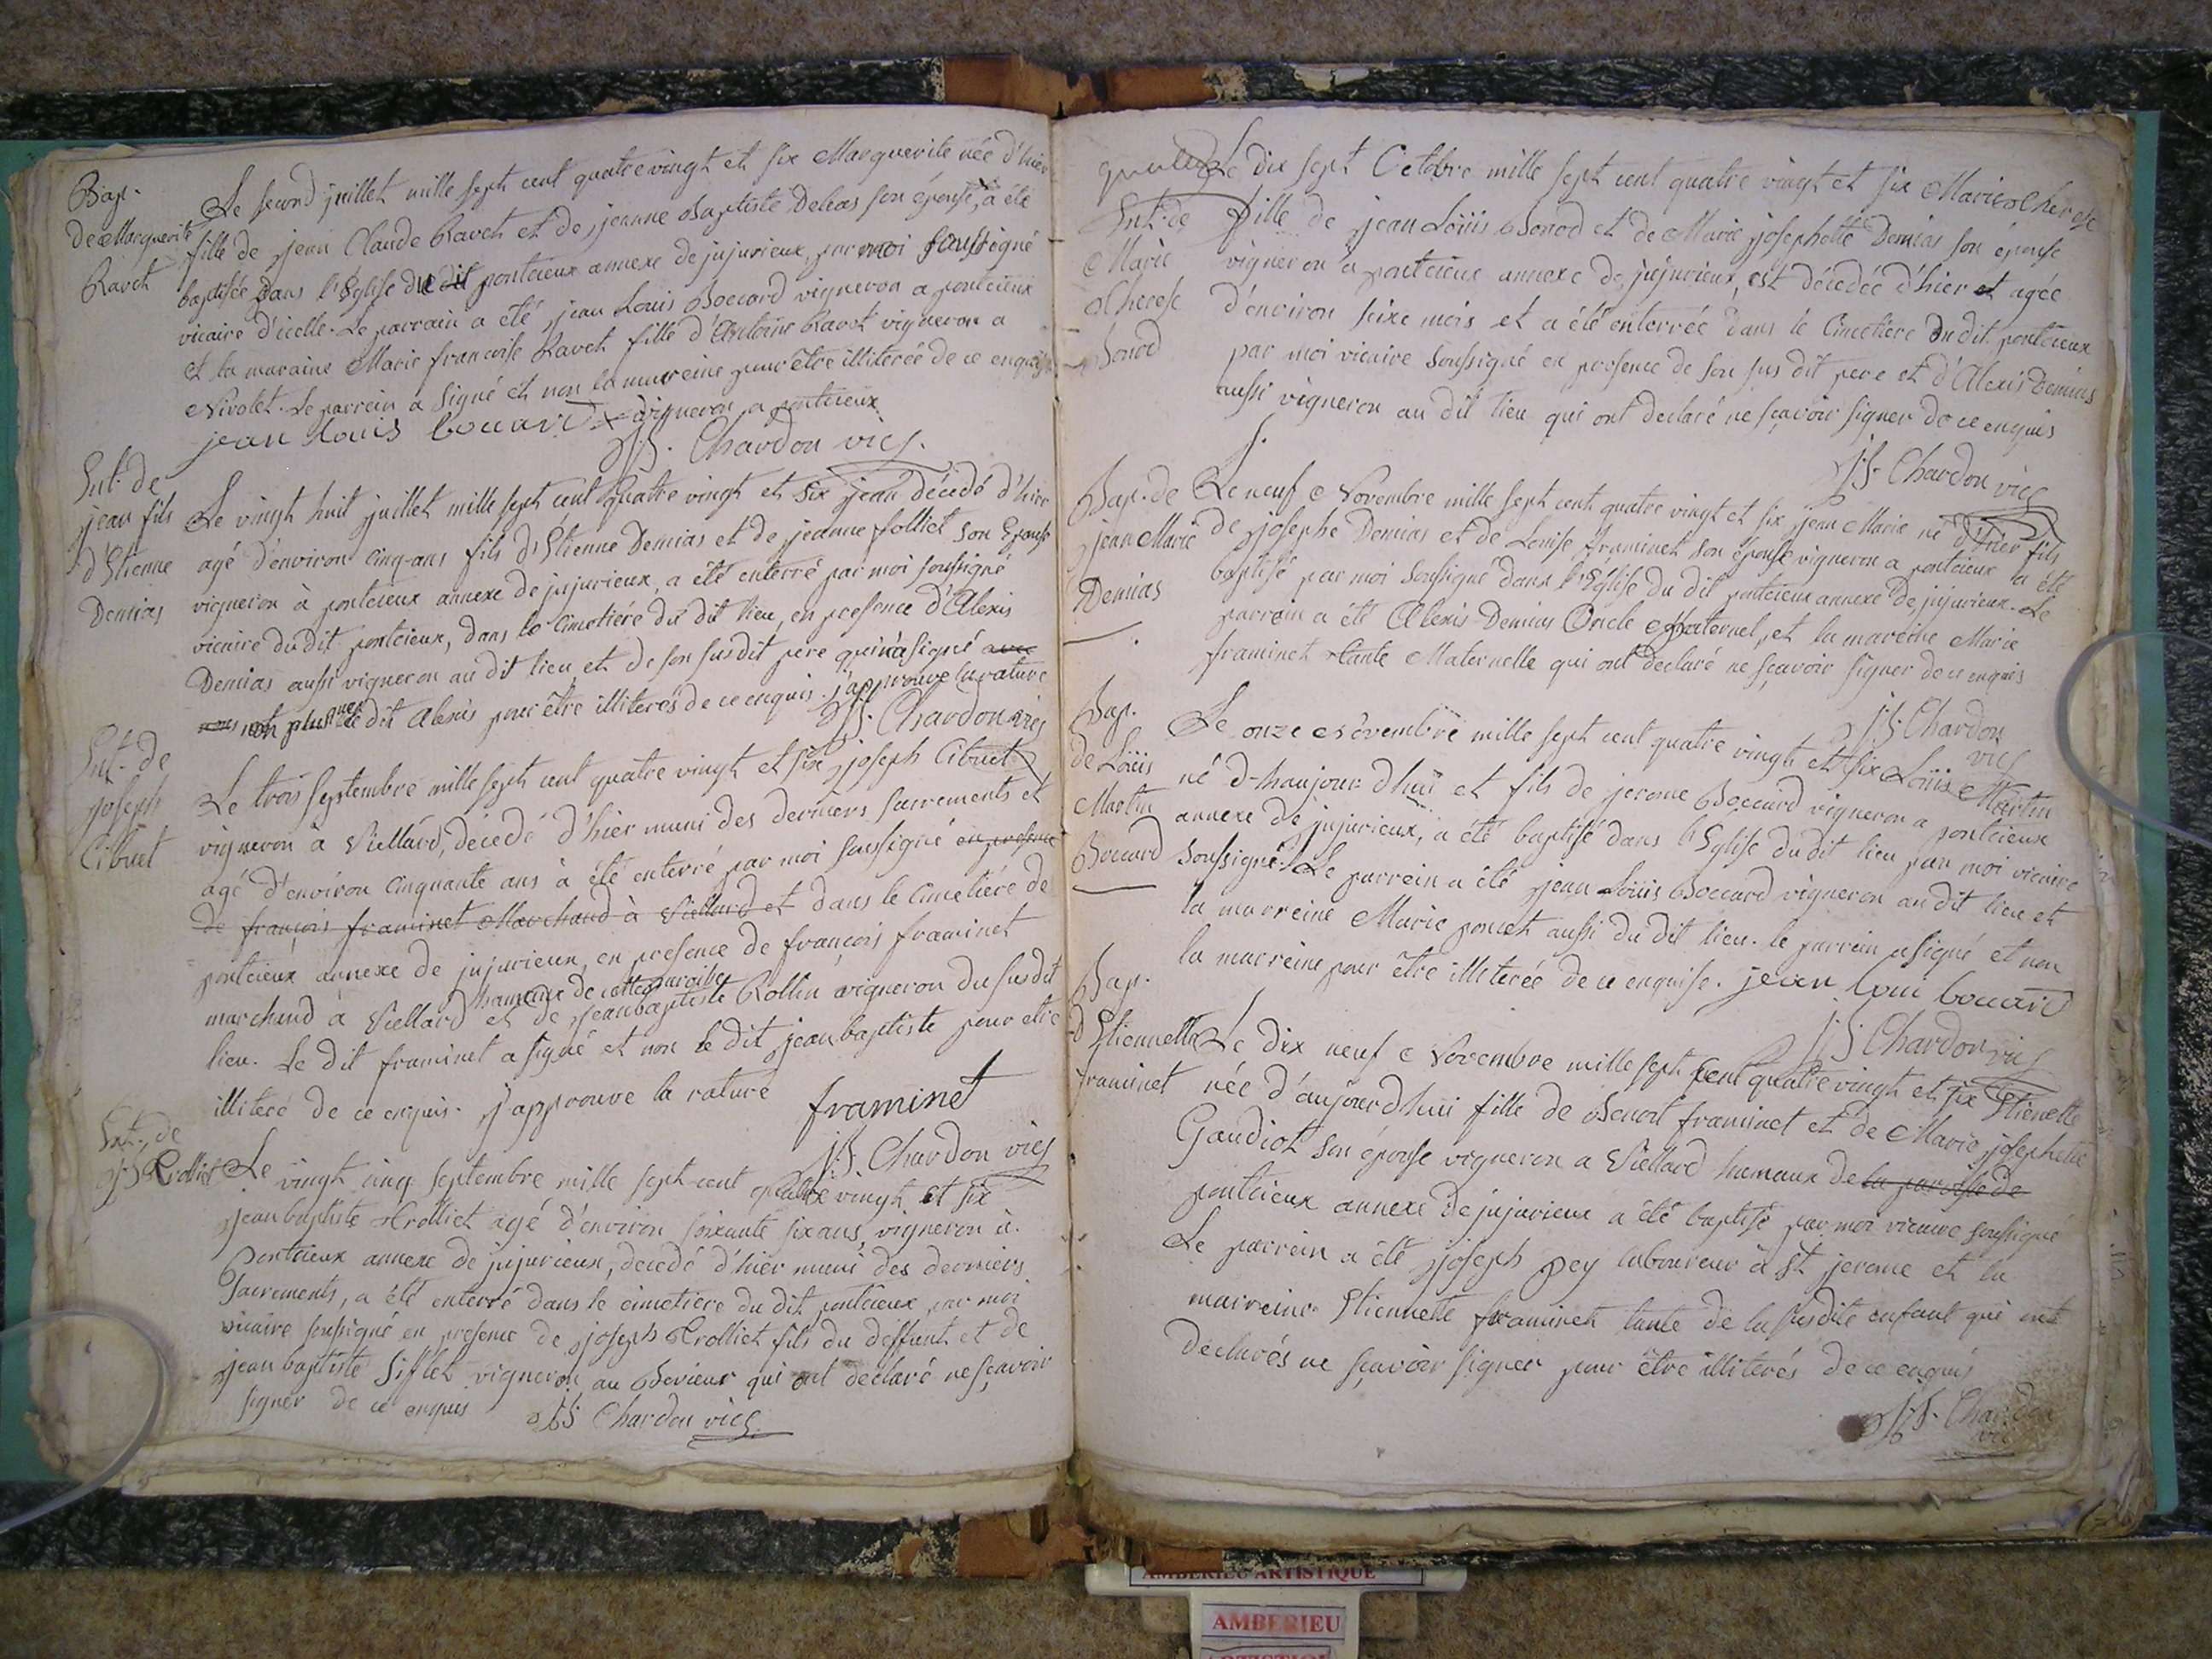 Bap.
de Marguerite
Ravet
Le second juillet mille sept cent quatre vingt et six Marguerite née d'hier
fille de jean Claude Ravet et de jeanne Baptiste Deleas son épouse, a été
baptisée dans l'Eglise du dit pontcieux annexe de jujurieux, par moi soussigné
vicaire d'icelle. Le parrain a été jean Louis Boccard vigneron a pontcieux
et la maraine Marie francoise Ravet fille d'Antoine Ravet vigneron a
Nivolet. Le parrein a signé et non la marreine pour être illiterée de ce enquise
jean louis boccard x vigneron a pontcieux
J.B. Chardon vics.
Ent. de
jean fils
d'Etienne
Demias
Le vingt huit juillet mille sept cent quatre vingt et six jean décédé d'hier
agé d'environ cinq-ans fils d'Etienne Demias et de jeanne folliet son Epouse
vigneron à pontcieux annexe de jujurieux, a été enterré par moi soussigné
vicaire du dit pontcieux, dans le cimetiére du dit lieu, en presence d'Alexis
Demias aussi vigneron au dit lieu et de son susdit pere qui n'a signé avec
nous non plus que le dit Alexis pour être illiterés de ce enquis. j'approuve la rature
J.B. Chardon vics
Ent. de
joseph
Cibuet
Le trois septembre mille sept cent quatre vingt et six joseph Cibuet
vigneron à Viellard, décedé d'hier muni des derniers sacrements et
agé d'environ cinquante ans à été enterré par moi soussigné en presence
de françois framinet Marchand à Viellard et dans le cimetiére de
pontcieux annexe de jujurieux, en presence de françois framinet
hameaux de cette paroisse
marchand à Viellard et de jean baptiste Rollin vigneron du susdit
lieu. Le dit framinet a signé et non le dit jean baptiste pour etre
illiteré de ce enquis. j'approuve la rature framinet
J.B. Chardon vics
Ent. de
J.B. Trolliet
Le vingt cinq septembre mille sept cent quatre vingt et six
jean baptiste Trolliet agé d'environ soixante six ans, vigneron à
Pontcieux annexe de jujurieux, décedé d'hier muni des derniers
Sacrements, a été enterré dans le cimetiere du dit pontcieux par moi
vicaire soussigné en presence de joseph Trolliet fils du deffunt et de
jean baptiste Sifflet vigneron au Berieux qui ont declaré ne sçavoir
signer de ce enquis J.B Chardon vics.
Ent. de
Marie
Therese
Bonod
Le dix sept Octobre mille sept cent quatre vingt et six Marie Therese
fille de jean Loüis Bonod et de Marie josephette Demias son épouse
vigneron à pontcieux annexe de jujurieux, est décedée d'hier et agée
d'environ seixe mois et a été enterrée dans le Cimetiere du dit pontcieux
par moi vicaire soussigné en presence de son sus dit pere et d'Alexis Demias
aussi vigneron au dit lieu qui ont declaré ne sçavoir signer de ce enquis
J.B. Chardon vics
Bap. de
jean Marie
Demias
Le neuf Novembre mille sept cent quatre vingt et six jean Marie né d'hier fils
de josephe Demias et de Louise framinet son épouse vigneron a pontcieux a été
baptisé par moi soussigné dans l'Eglise du dit pontcieux annexe de jujurieux. Le
parrein a été Alexis Demias Oncle paternel, et la mareine Marie
framinet tante Maternelle qui ont declaré ne sçavoir signer de ce enquis
J.B. Chardon
vics
Bap.
de Loüis
Martin
Boccard
Le onze Novembre mille sept cent quatre vingt et six Loüis Martin
né d-haujour d'hui et fils de jerome Boccard vigneron a pontcieux
annexe de jujurieux, a été baptisé dans l'Eglise du dit lieu par moi vicaire
soussigné. Le parrein a été jean Loüis Boccard vigneron au dit lieu et
la marreine Marie poncet aussi du dit lieu. le parrein a signé et non
la marreine pour être illiterée de ce enquise. jean loui bocard
J.B Chardon vics
Bap.
d'Etiennette
framinet
Le dix neuf Novembre mille sept cent quatre vingt et six Etienette
née d'aujourd'hui fille de Benoit framinet et de Marie josephette
Gaudiot son épouse vigneron a Viellard hamaux de la paroisse de
pontcieux annexe de jujurieux a été baptisé par moi vicaire soussigné
Le parrein a été joseph pey laboureur à St jerome et la
marreine Etiennette framinet tante de la susdite enfant qui ont
declarés ne sçavoir signer pour être illiterés de ce enquis
J.B. Chardon
vic
AMBERIEU ARTISTIQUE
AMBERIEU
ARTISTIQUE